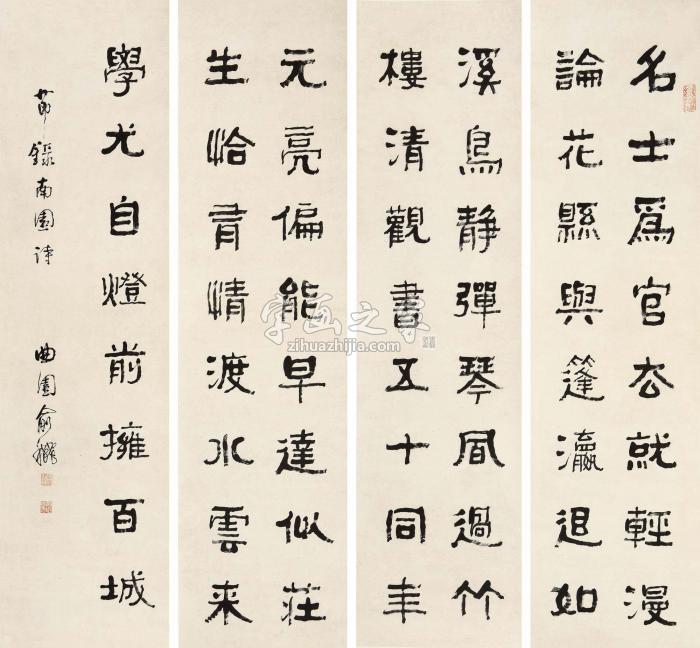 名士爲官去就輕漫
論花縣與篷瀛退如
溪鳥静彈琴風過竹
樓清觀書五十同年
元亮偏能早達似莊
生恰有情渡水雲来
學尤自燈前擁百城
節錄南園詩 曲園俞樾
字画之家
zihuazhijia.com